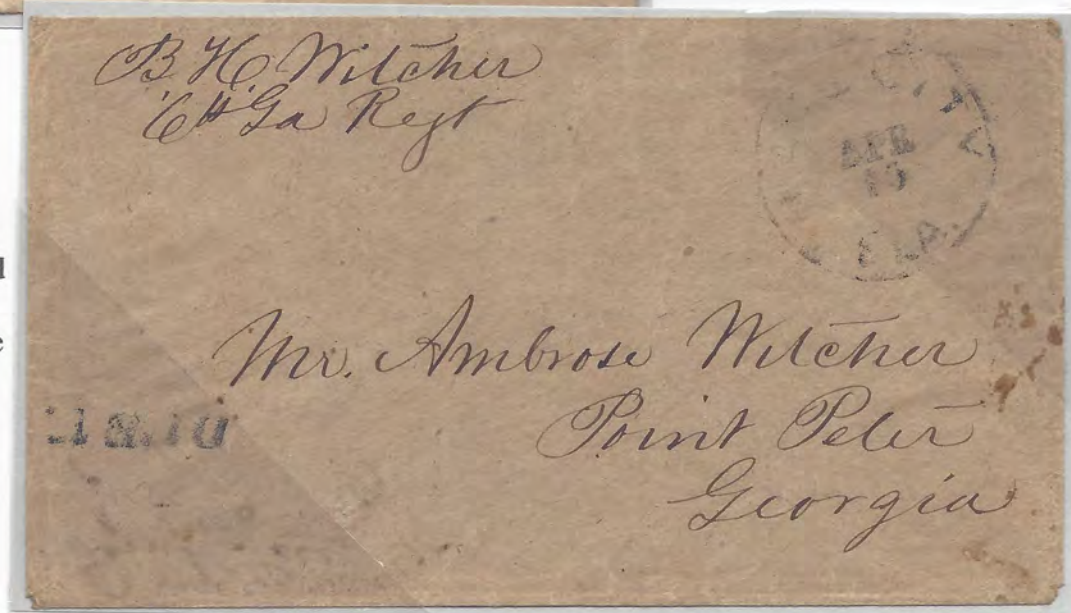 B. H. Witcher
6th Ga Regt
CITY
APR
FLA.
Mr. Ambrose Witcher
Point Peter
Georgia